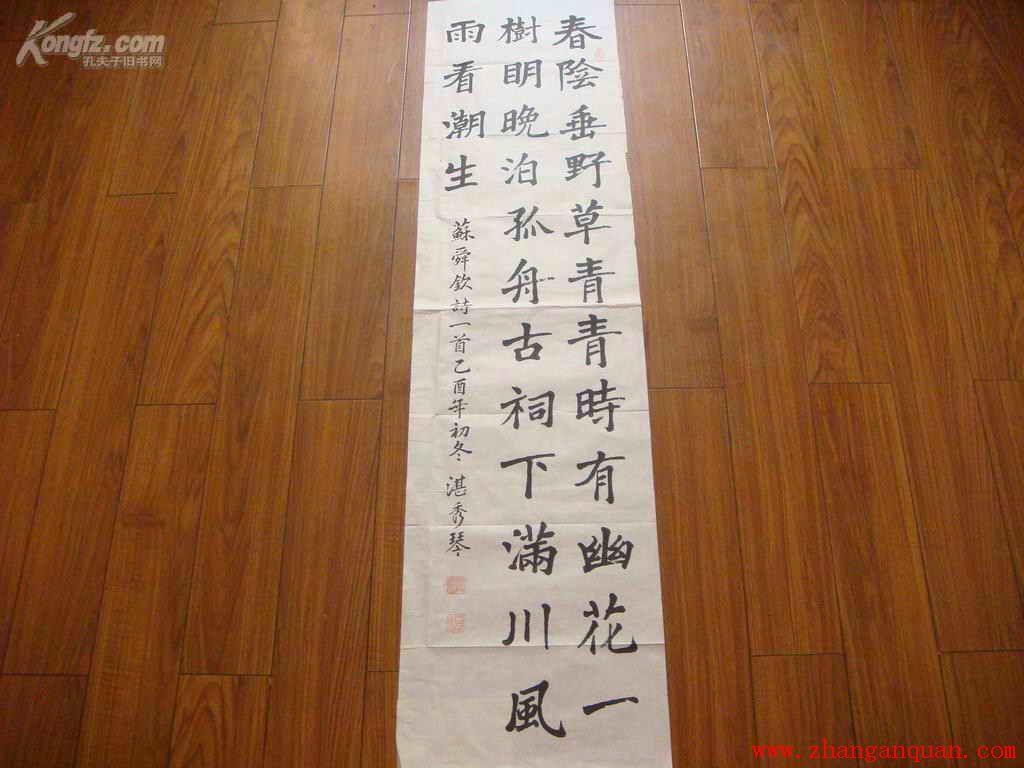 春陰垂野草青青時有幽花一
樹明晚泊孤舟古祠下滿川風
雨看潮生
蘇舜欽詩一首乙酉年初冬 湛秀琴
Kongfz.com
孔夫子旧书网
www.zhanganquan.com